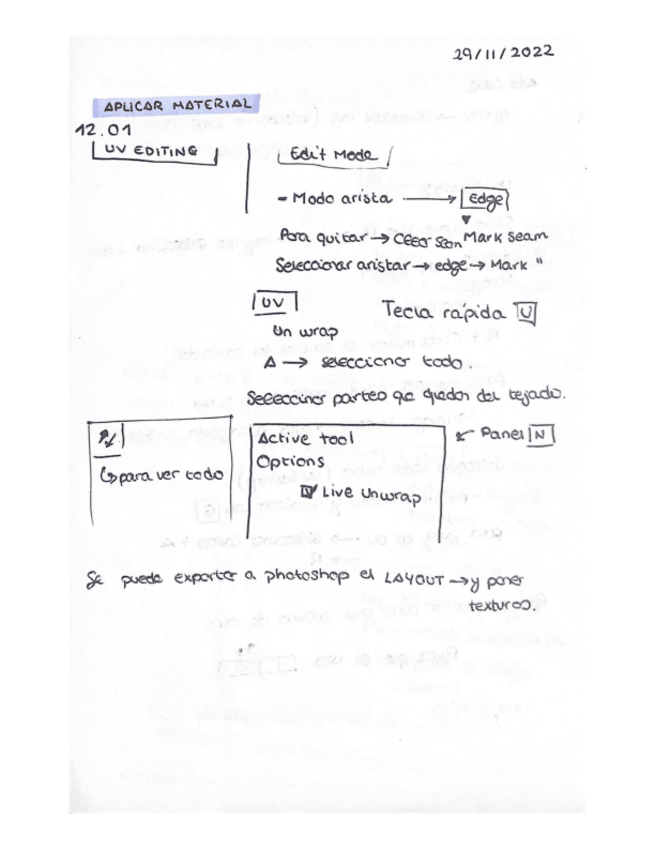 29/11/2022
APLICAR MATERIAL
12.01
UV EDITING
Edit Mode
- Modo arista → Edge
Para quitar → Clear Seam Mark seam
Seleccionar aristar → edge → Mark "
UV
Tecla rápida U
Un wrap
A → seleccionar todo.
Seleccionar partes que quedan del tejado.
↳ para ver todo
Active tool
Options
☑ Live Unwrap
← Panel N
Se puede exportar a photoshop el LAYOUT → y poner
texturas.